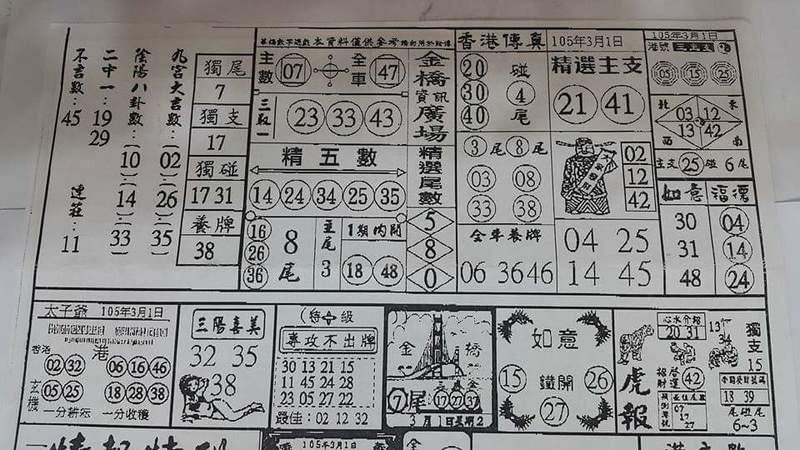 九宮大吉數:(02).(26).(35)
陰陽八卦數:(10).(14).(33)
二中一:19 29
不出數:45
連莊:11
獨尾
7
獨支
17
獨碰
17 31
養牌
38
本資料僅供參考
主數 07
全車 47
三取一
23 33 43
精五數
14 24 34 25 35
16
26
36
8尾
主尾
3
1期內開
18 48
金橋資訊廣場
精選尾數
5
8
0
香港傳真 105年3月1日
20
30
40
碰
4
尾
3尾 8尾
03 08
33 38
全車養牌
06 36 46
精選主支
21 41
02
12
42
04 25
14 45
105年3月1日
港號
05 15 25
北 東
03 12
13 42
西 南
主支 25 碰 6尾
如意 福德
30 04
31 14
48 24
太子爺 105年3月1日
香港
港
02 32
06 16 46
玄機
05 25
18 28 38
一分耕耘 一分收穫
三陽喜美
32 35
38
(特 級
專攻不出牌
30 13 21 15
11 45 24 28
23 05 27 22
最佳:02 12 32
金橋
7尾 17 27 37
3月1日星期2
如意
15 鐵開 26
27
心水介紹
20 31
13
34
獨支
15
虎報
招財
啓運
42
07
17
27
18 39
尾碰尾
6~3
105年3月1日